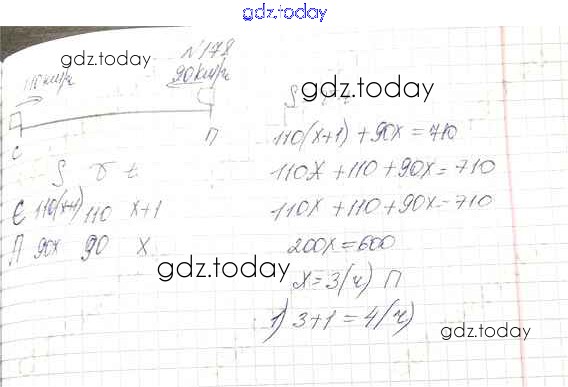 gdz.today
N178
gdz.today
110км/ч 90км/ч
gdz.today
С П
S v t
С 110(x+1) 110 x+1
П 90x 90 x
110(x+1) + 90x = 710
110x + 110 + 90x = 710
110x + 110 + 90x = 710
200x = 600
x = 3(ч) П
1) 3+1 = 4(ч)
gdz.today
gdz.today